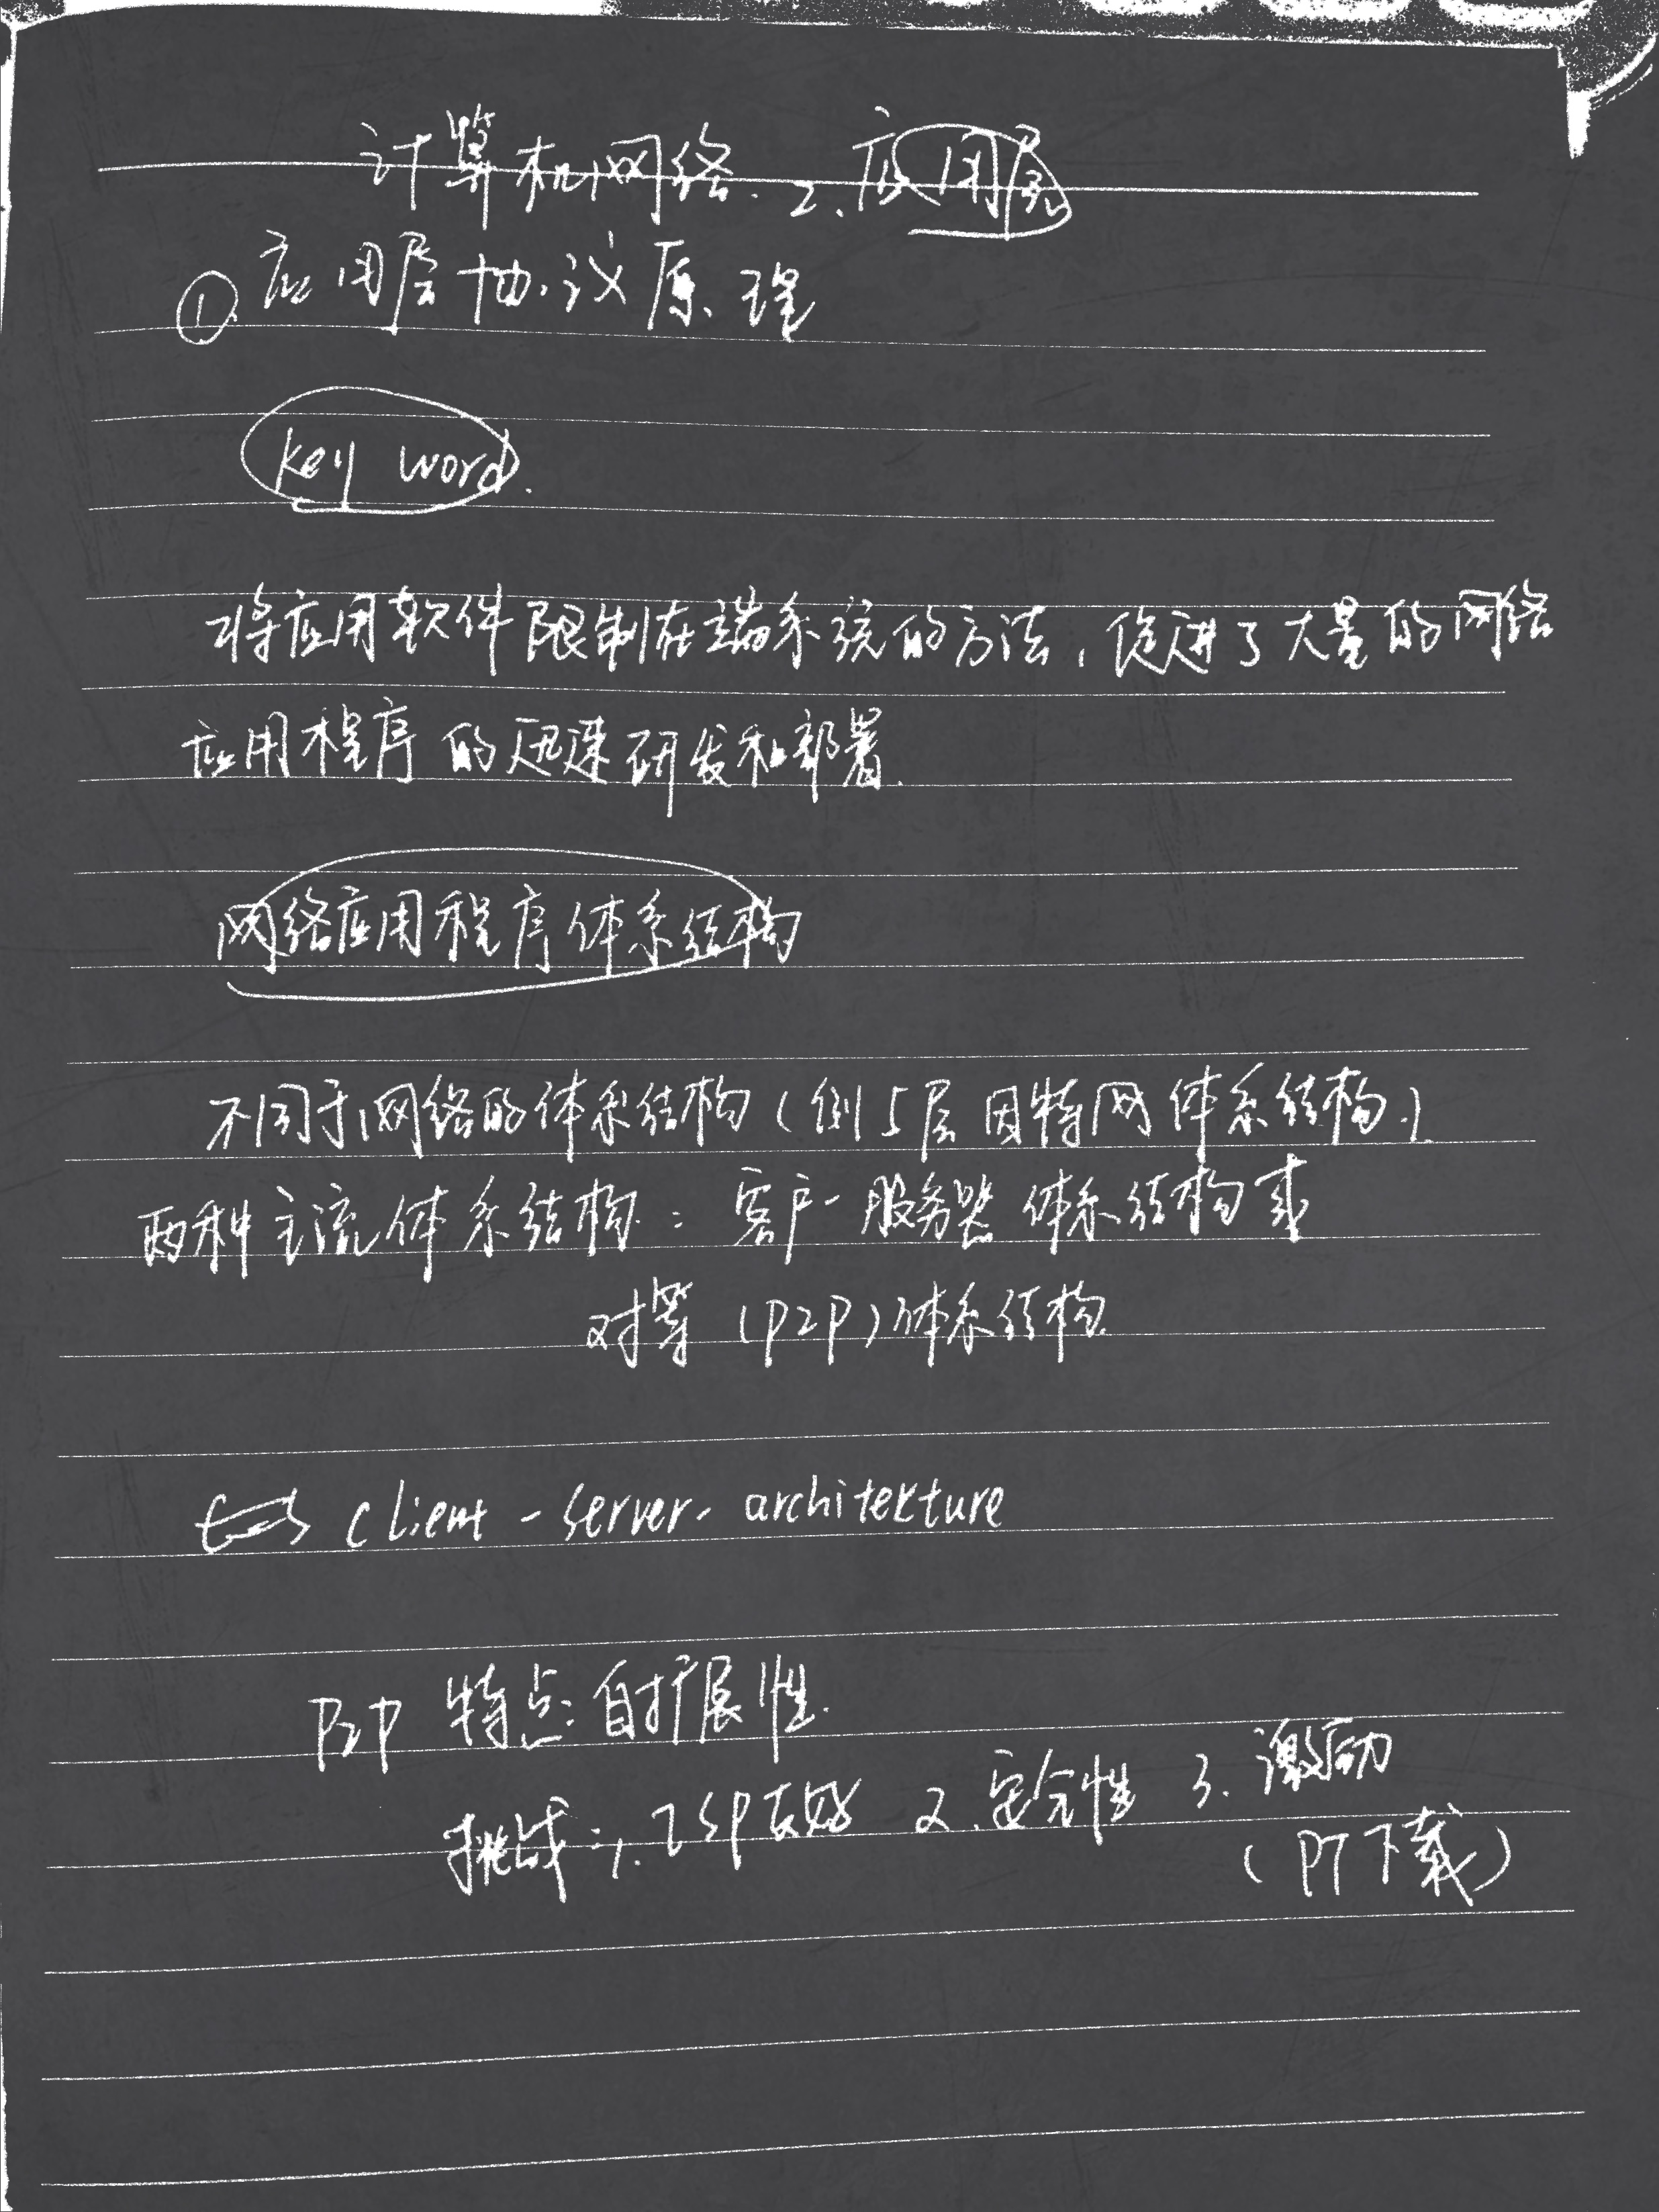 计算机网络. 2. 应用层
①. 应用层协议原理
key word.
将应用软件限制在端系统的方法, 促进了大量的网络
应用程序的迅速研发和部署.
网络应用程序体系结构
不同于网络的体系结构 (例5层因特网体系结构.)
两种主流体系结构: 客户-服务器体系结构或
对等 (P2P) 体系结构.
client - server - architekture
P2P 特点: 自扩展性.
挑战: 1. ISP友好 2. 安全性 3. 激励
(PT下载)